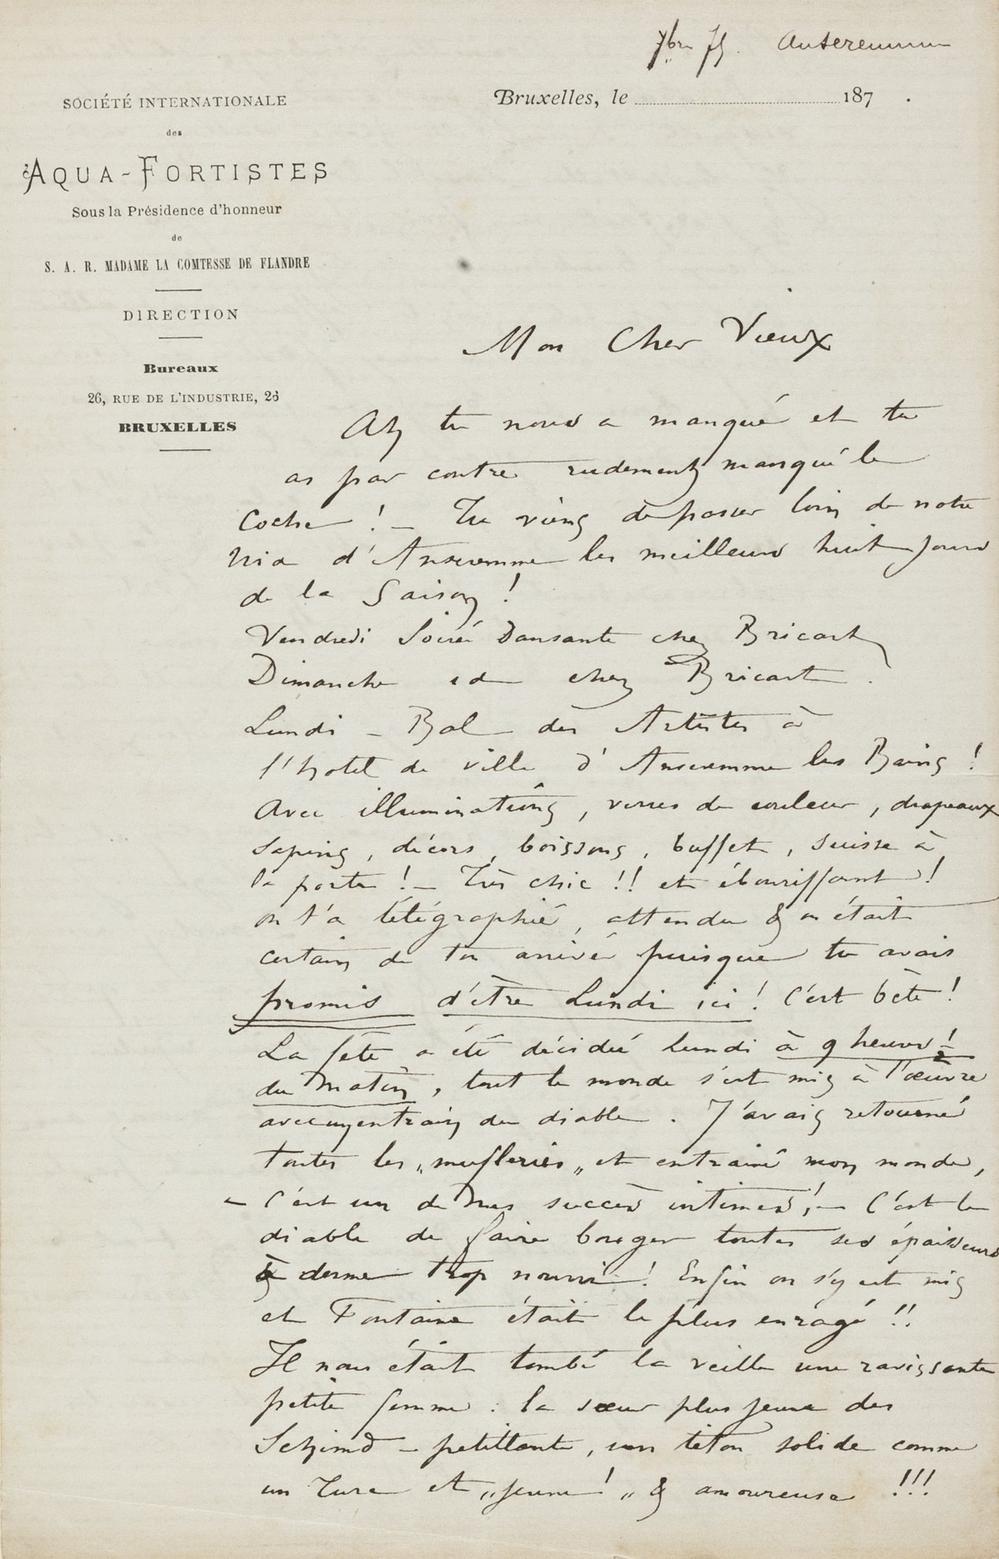 7bre 75. Anseremme
SOCIÉTÉ INTERNATIONALE
des
AQUA-FORTISTES
Sous la Présidence d'honneur
de
S. A. R. MADAME LA COMTESSE DE FLANDRE
DIRECTION
Bureaux
26, RUE DE L'INDUSTRIE, 26
BRUXELLES
Bruxelles, le 187 .
Mon Cher Vieux
Ah tu nous a manqué et tu
as par contre rudement manqué le
Coche ! – Tu viens de passer loin de notre
d'Anseremme les meilleurs huit jours
de la Saison !
Vendredi Soirée Dansante chez Bricart
Dimanche id chez Bricart .
Lundi – Bal des Artistes à
l'hotel de ville d'Anseremme les Bains !
Avec illuminations, verres de couleur, drapeaux
Sapins, décors, boissons, buffet, suisse à
la porte ! – Très chic !! et ébouriffant !
on t'a télégraphié, attendu & on était
certain de ton arrivée puisque tu avais
promis d'être Lundi ici ! C'est bête !
La fête a été décidée lundi à 9 heures !
du Matin, tout le monde s'est mis à l'œuvre
avec un entrain du diable . J'avais retourné
toutes les „mufleries„ et entrainé mon monde,
– C'est un de mes succès intimes ! – C'est le
diable de faire bouger toutes ces épaisseurs
à derme trop nourri ! Enfin on s'y est mis
et Fontaine était le plus enragé !!
Il nous était tombé la veille une ravissante
petite femme : la sœur plus jeune des
– petillante, un téton solide comme
un Turc et „jeune ! „ & amoureuse !!!